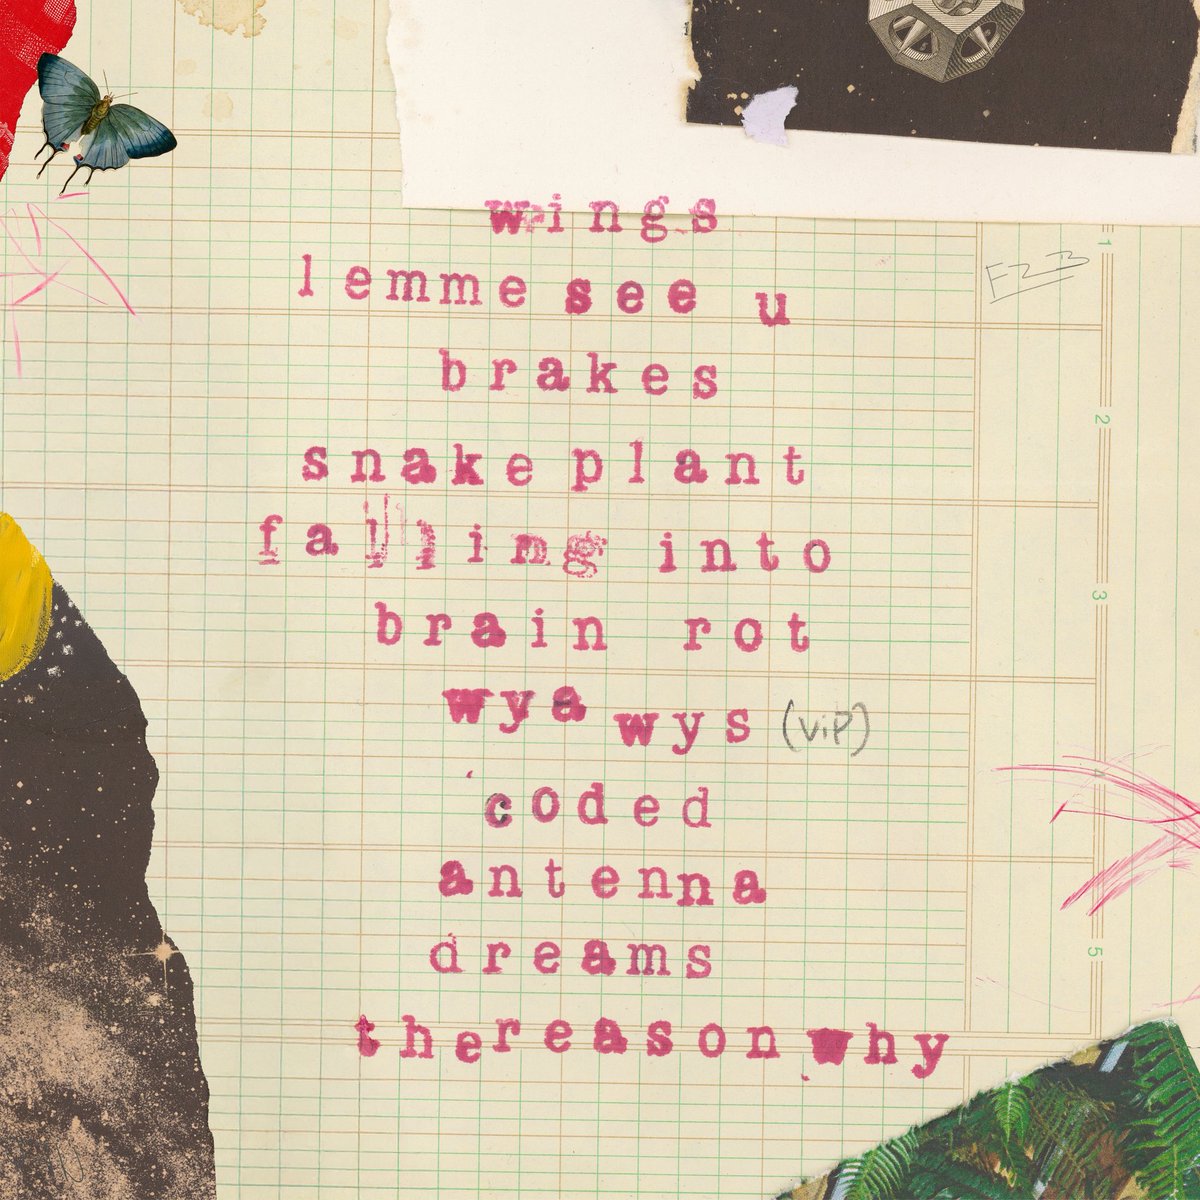 wings
lemme see u
FZB
brakes
snake plant
falling into
brain rot
wya wys (vip)
coded
antenna
dreams
thereason why
1
2
3
4
5